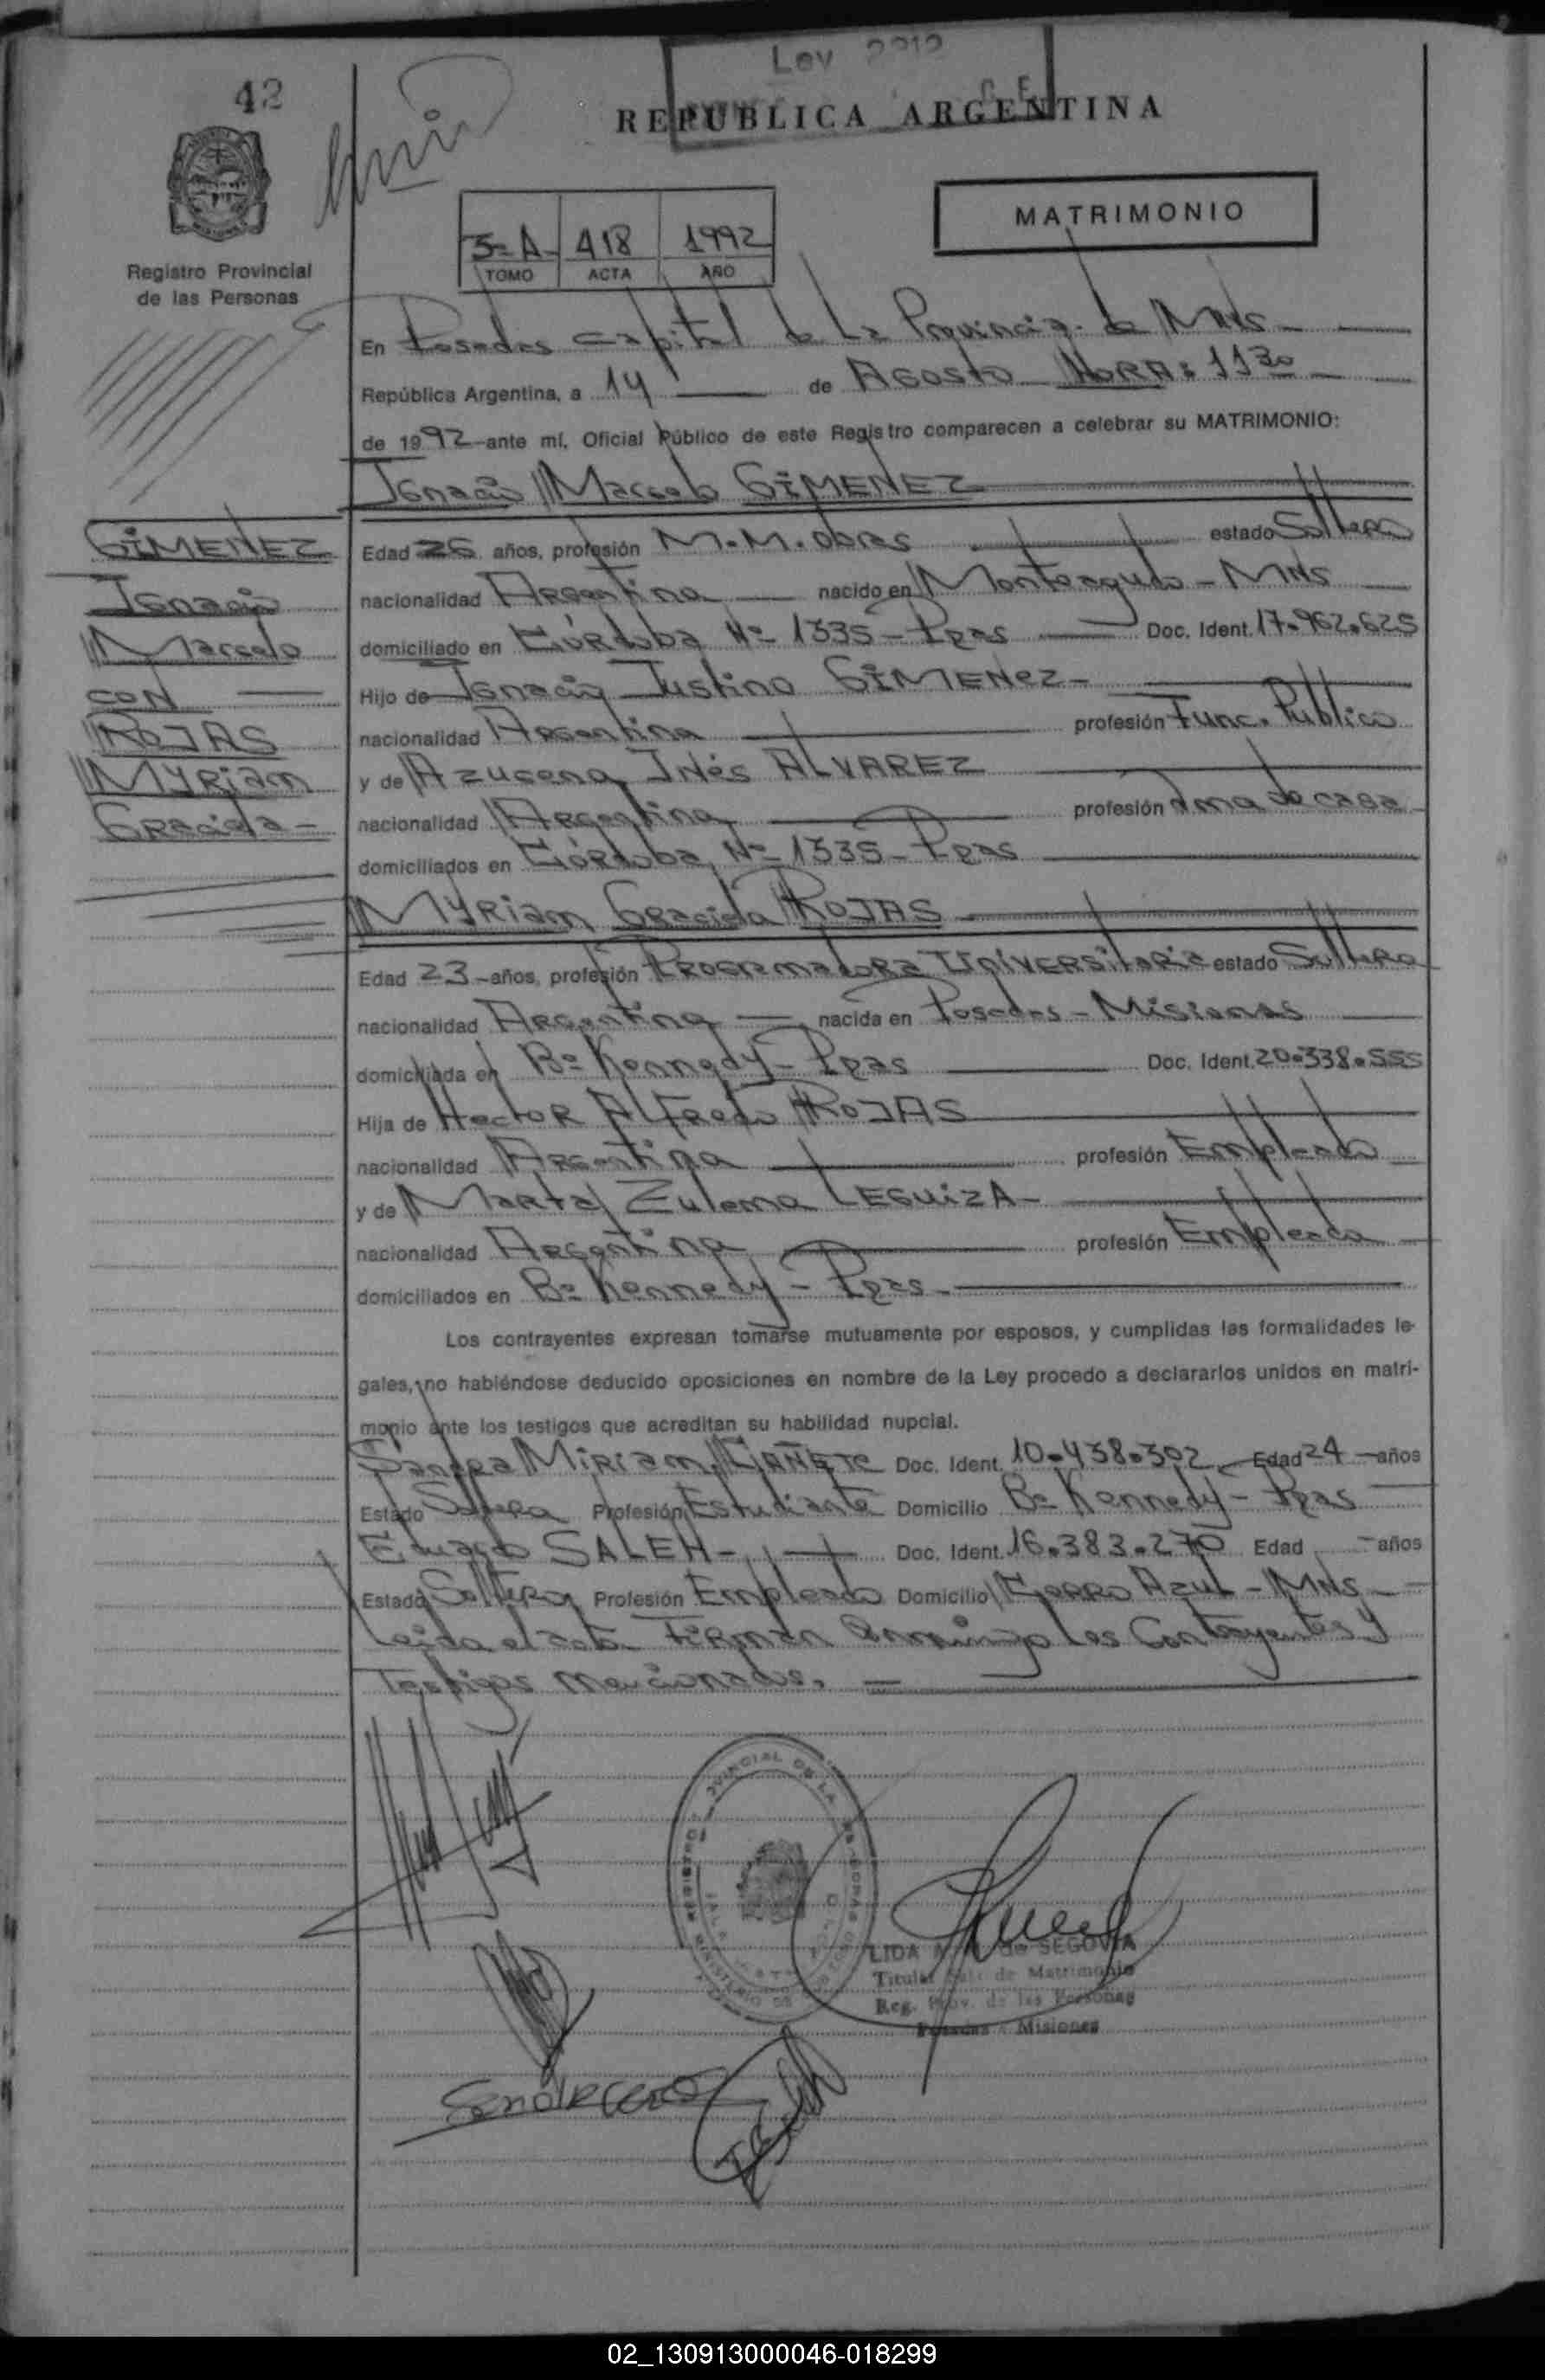 Ley 2912
42
REPUBLICA ARGENTINA
MATRIMONIO
3=A- 418 1992
TOMO ACTA AÑO
Registro Provincial
de las Personas
En Posadas Capital de La Provincia de MNS
República Argentina, a 14 de Agosto HORA: 11 30
de 1992 ante mí, Oficial Público de este Registro comparecen a celebrar su MATRIMONIO:
Ignacio Marcelo GIMENEZ
GIMENEZ
Ignacio
Marcelo
CON
ROJAS
MYRIAM
Graciela-
Edad 26 años, profesión M.M. Obras estado Soltero
nacionalidad Argentina nacido en Monteagudo - MNS
domiciliado en Córdoba Nº 1335 - Pdas Doc. Ident. 17.962.625
Hijo de Ignacio Justino GIMENEZ-
nacionalidad Argentina profesión Func. Publico
y de Azucena Inés ALVAREZ
nacionalidad Argentina profesión Ama de casa
domiciliados en Córdoba Nº 1335 - Pdas
MYRIAM Graciela ROJAS
Edad 23 años, profesión Programadora Universitaria estado Soltera
nacionalidad Argentina nacida en Posadas - Misiones
domiciliada en Bº Kennedy - Pdas Doc. Ident. 20.338.555
Hija de Hector Alfredo ROJAS
nacionalidad Argentina profesión Empleado
y de Marta Zulema LEGUIZA-
nacionalidad Argentina profesión Empleada
domiciliados en Bº Kennedy - Pdas-
Los contrayentes expresan tomarse mutuamente por esposos, y cumplidas las formalidades le-
gales, no habiéndose deducido oposiciones en nombre de la Ley procedo a declararlos unidos en matri-
monio ante los testigos que acreditan su habilidad nupcial.
Sandra Miriam CAÑETE Doc. Ident. 10.438.302 Edad 24 años
Estado Soltera Profesión Estudiante Domicilio Bº Kennedy - Pdas
Eduardo SALEH- Doc. Ident. 16.383.270 Edad - años
Estado Soltero Profesión Empleado Domicilio Cerro Azul - MNS
Leida el acta Firman Conmigo Los Contrayentes y
Testigos mencionados.
LIDA de SEGOVIA
Titular de Matrimonio
Reg. Prov. de las Personas
Posadas - Misiones
02_130913000046-018299